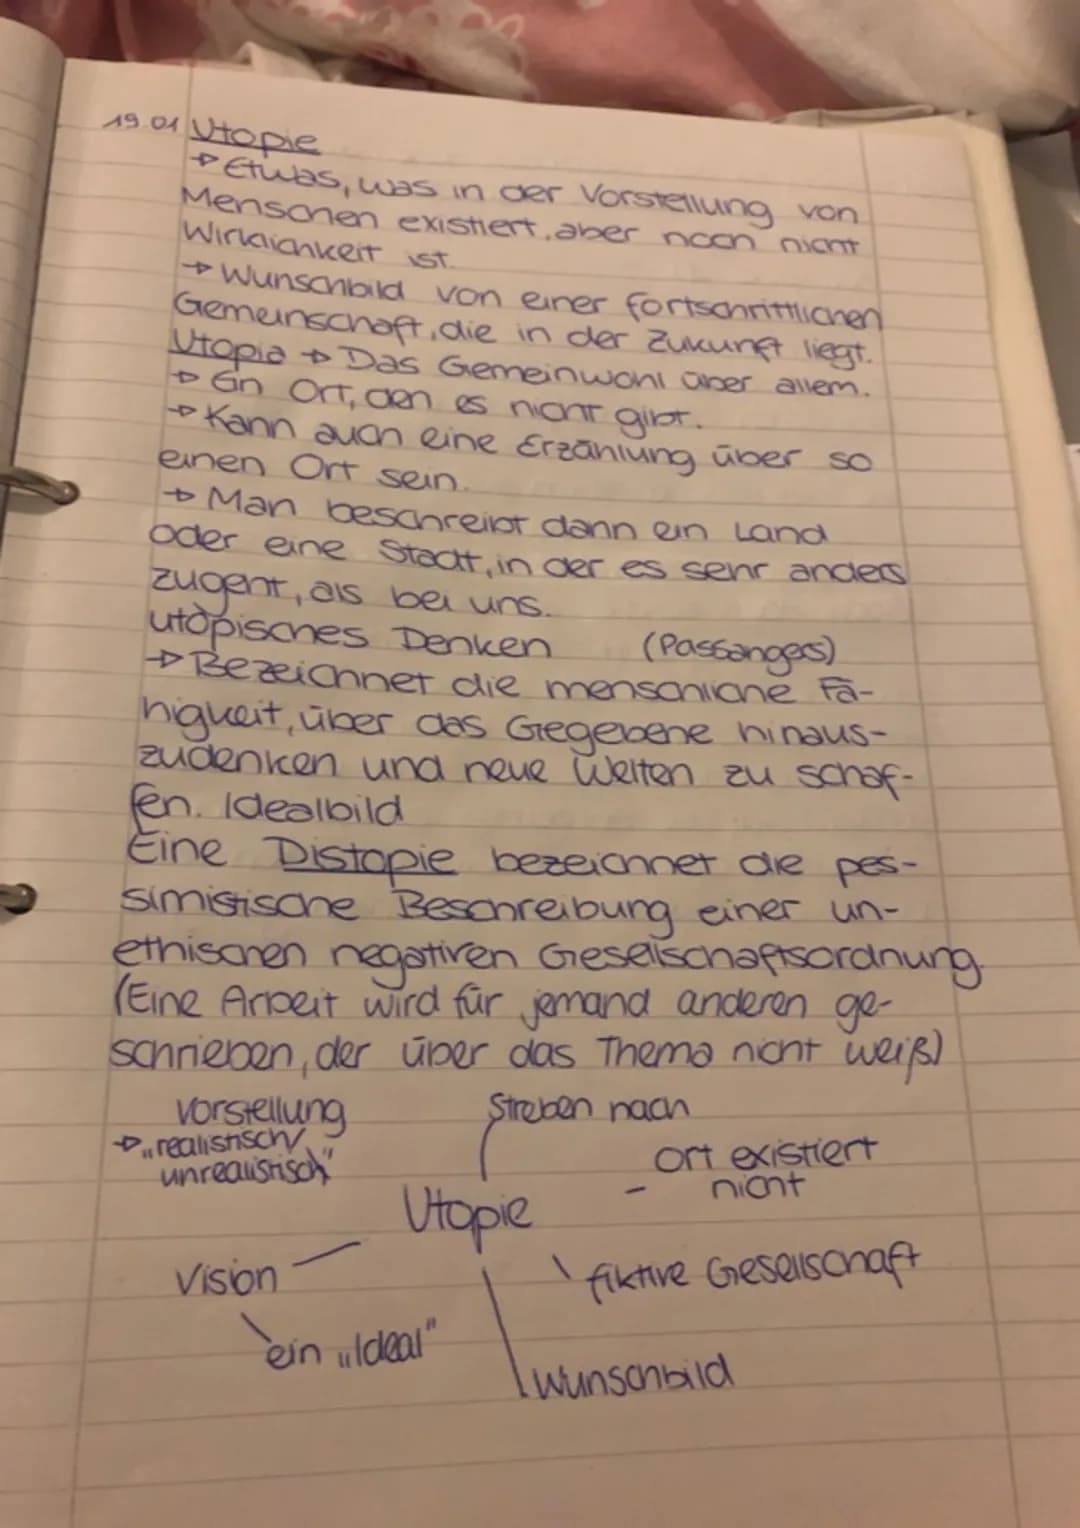 19.01 Utopie
→ Etwas, was in der Vorstellung von
Menschen existiert, aber noch nicht
Wirklichkeit ist.
→ Wunschbild von einer fortschrittlichen
Gemeinschaft, die in der Zukunft liegt.
Utopia → Das Gemeinwohl über allem.
→ Ein Ort, den es nicht gibt.
→ Kann auch eine Erzählung über so
einen Ort sein.
→ Man beschreibt dann ein Land
oder eine Stadt, in der es sehr anders
zugeht, als bei uns.
utopisches Denken (Passangers)
→ Bezeichnet die menschliche Fä-
higkeit, über das Gegebene hinaus-
zudenken und neue Welten zu schaf-
fen. Idealbild
Eine Distopie bezeichnet die pes-
simistische Beschreibung einer un-
ethischen negativen Gesellschaftsordnung.
(Eine Arbeit wird für jemand anderen ge-
schrieben, der über das Thema nicht weiß)
Vorstellung
→ „realistisch/
unrealistisch"
Streben nach
- Ort existiert
nicht
Utopie
Vision
fiktive Gesellschaft
ein „Ideal"
Wunschbild